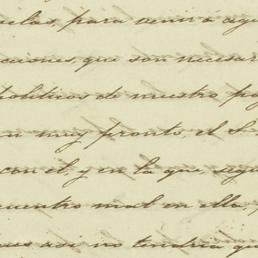 elas, para venir á aqu
caciones, que son necesar
políticos de nuestro pa
n muy pronto, el S
con él, y en la que, segu
cuentro mal en ella,
ues asi no tendria qu